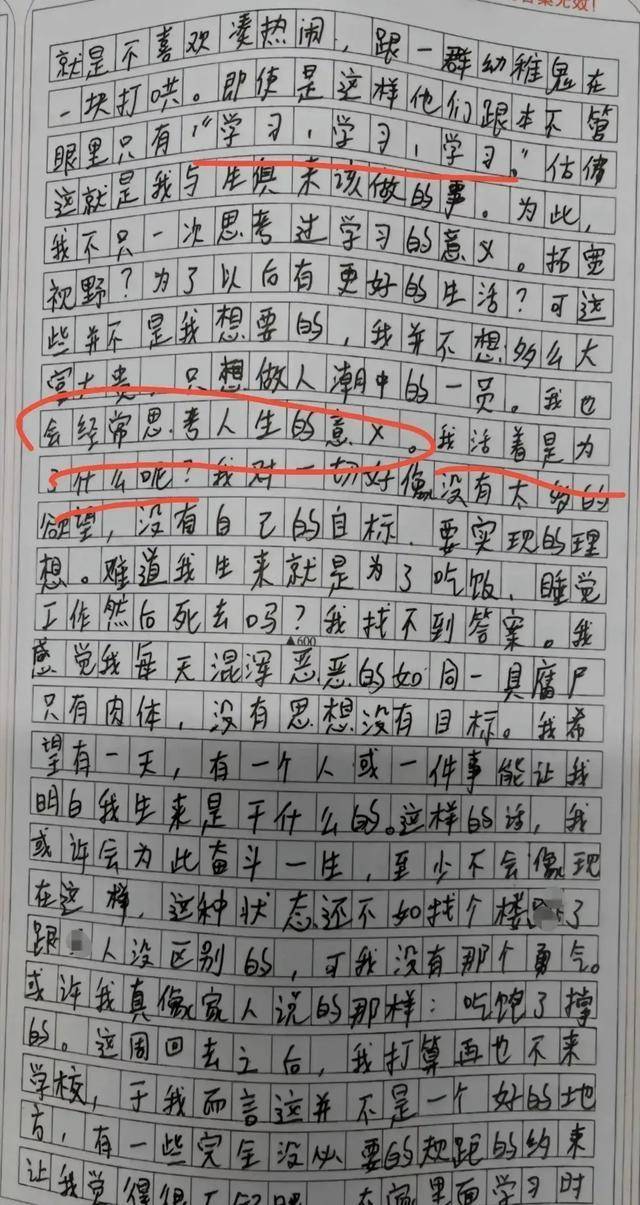 答案无效!
就是不喜欢凑热闹,跟一群幼稚鬼在
一块打哄。即使是这样他们跟本不管
眼里只有,“学习,学习,学习。”估佛
这就是我与生俱来该做的事。为此,
我不只一次思考过学习的意义。拓宽
视野?为了以后有更好的生活?可这
些并不是我想要的,我并不想多么大
富大贵,只想做人潮中的一员。我也
会经常思考人生的意义。我活着是为
了什么呢?我对一切好像没有太多的
欲望,没有自己的目标、要实现的理
想。难道我生来就是为了吃饭、睡觉
工作然后死去吗?我找不到答案。我
▲600
感觉我每天混浑恶恶的如同一具腐尸
只有肉体,没有思想没有目标。我希
望有一天,有一个人或一件事能让我
明白我生来是干什么的。这样的话,我
或许会为此奋斗一生,至少不会像现
在这样,这种状态还不如找个楼 了
跟 人没区别的,可我没有那个勇气。
或许我真像家人说的那样:吃饱了撑
的。这周回去之后,我打算再也不来
学校,于我而言这并不是一个好的地
方,有一些完全没必要的规距的约束
让我觉得很 在家里面学习时